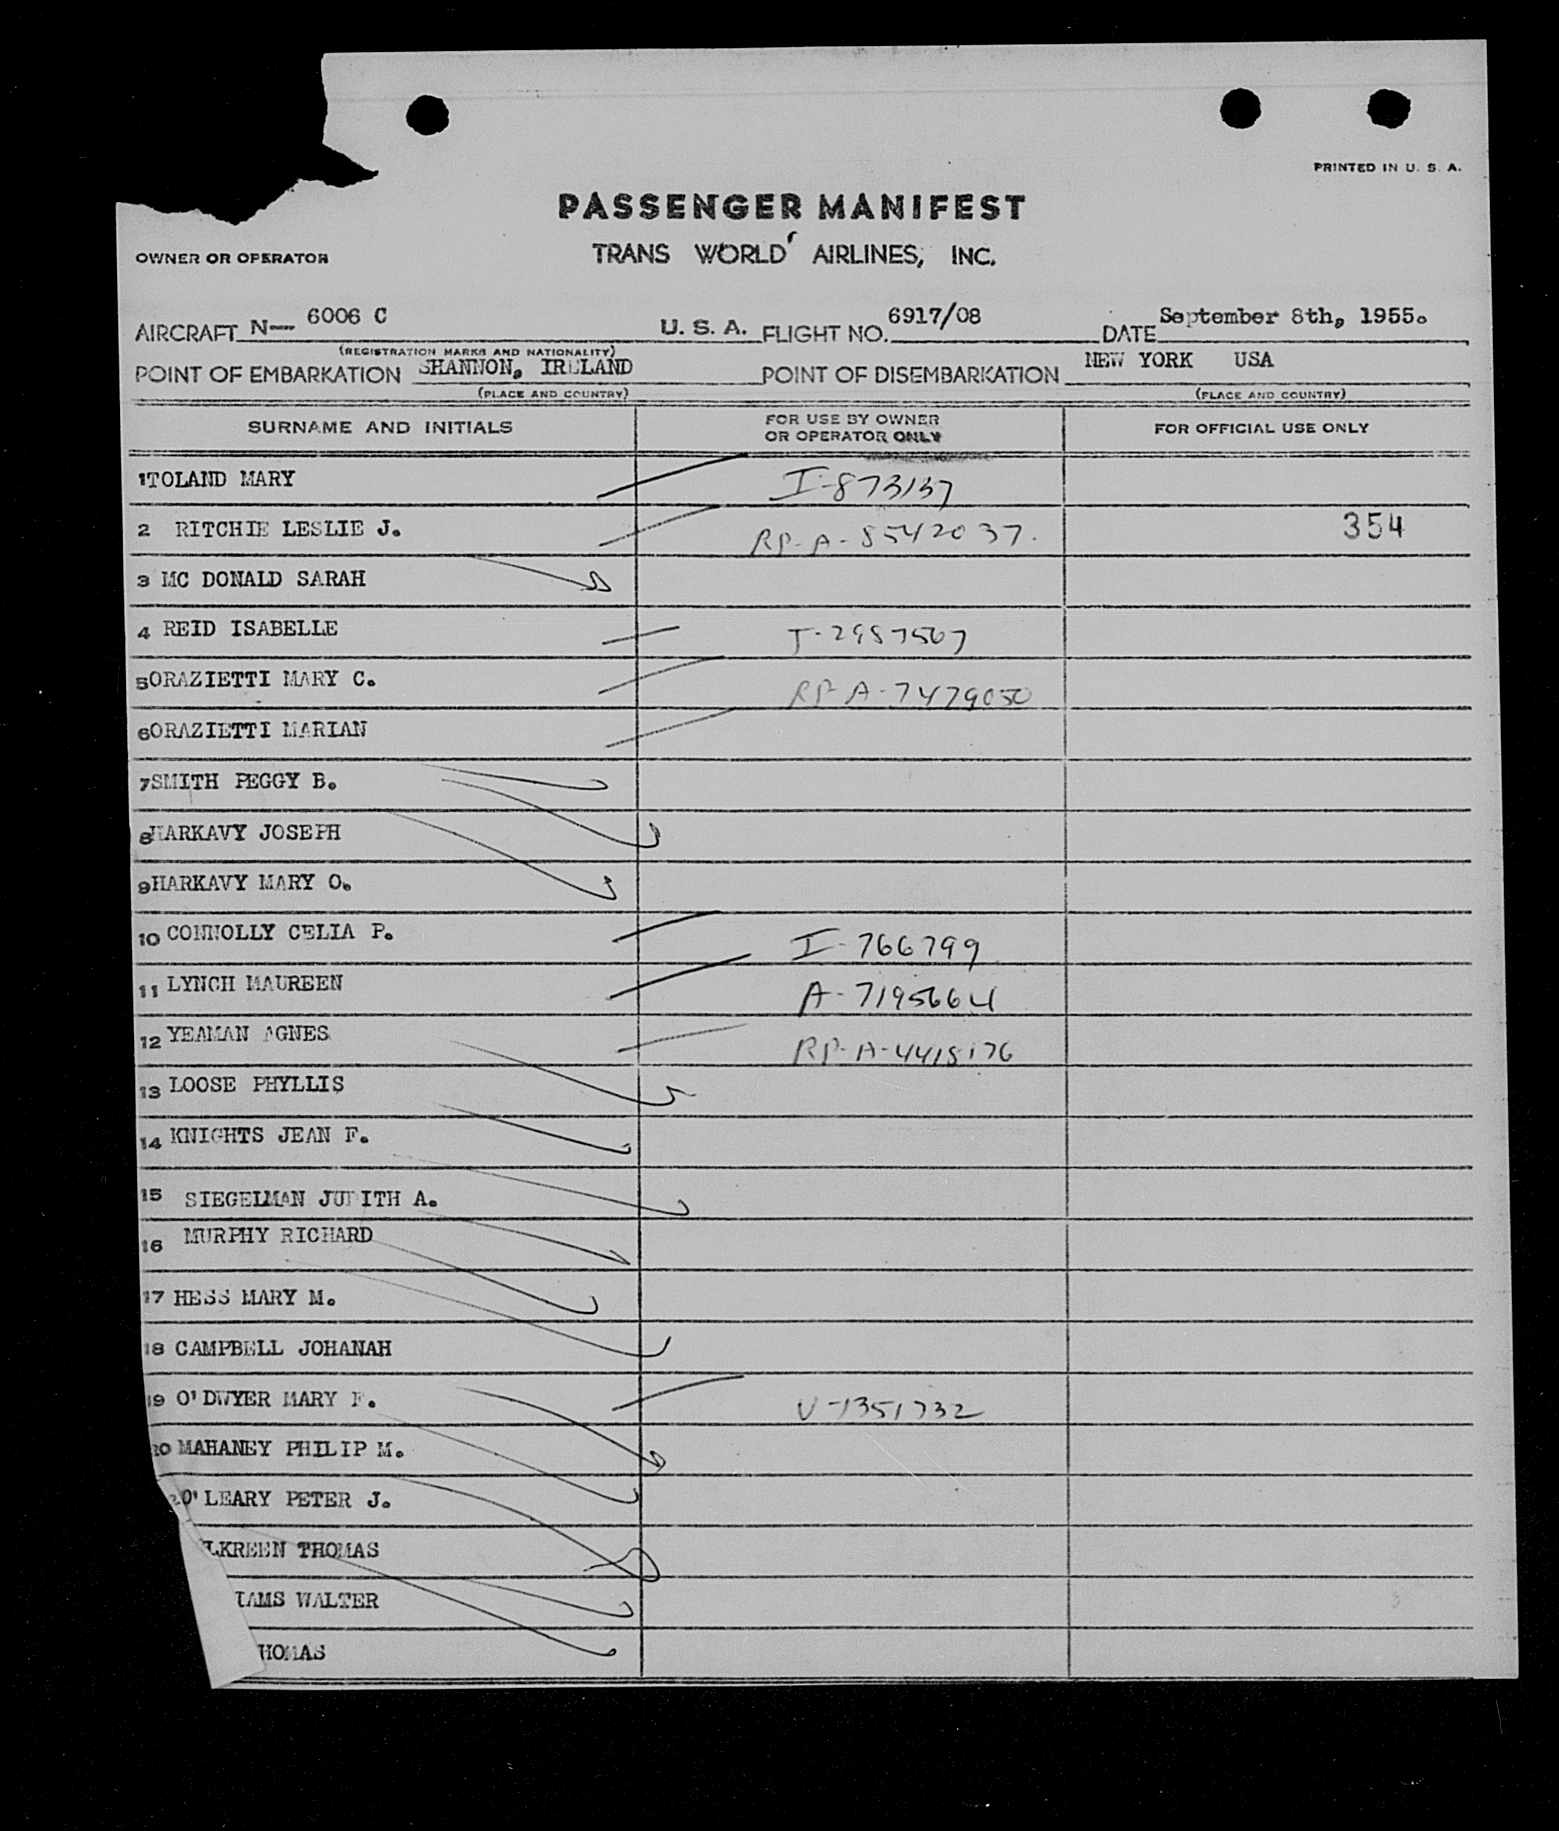 PRINTED IN U. S. A.
PASSENGER MANIFEST
OWNER OR OPERATOR TRANS WORLD AIRLINES, INC.
AIRCRAFT N— 6006 C U. S. A. FLIGHT NO. 6917/08 DATE September 8th, 1955.
(REGISTRATION MARKS AND NATIONALITY)
POINT OF EMBARKATION SHANNON, IRELAND POINT OF DISEMBARKATION NEW YORK USA
(PLACE AND COUNTRY) (PLACE AND COUNTRY)
SURNAME AND INITIALS FOR USE BY OWNER OR OPERATOR ONLY FOR OFFICIAL USE ONLY
1 TOLAND MARY I-873137
2 RITCHIE LESLIE J. RP-A-8542037. 354
3 MC DONALD SARAH
4 REID ISABELLE I-2957567
5 ORAZIETTI MARY C. RP A-7479050
6 ORAZIETTI MARIAN
7 SMITH PEGGY B.
8 HARKAVY JOSEPH
9 HARKAVY MARY O.
10 CONNOLLY CELIA P. I-766799
11 LYNCH MAUREEN A-7195664
12 YEAMAN AGNES RP-A-4415176
13 LOOSE PHYLLIS
14 KNIGHTS JEAN F.
15 SIEGELMAN JUDITH A.
16 MURPHY RICHARD
17 HESS MARY M.
18 CAMPBELL JOHANAH
19 O'DWYER MARY F. V-1351732
20 MAHANEY PHILIP M.
O'LEARY PETER J.
LKREEN THOMAS
IAMS WALTER
HOMAS